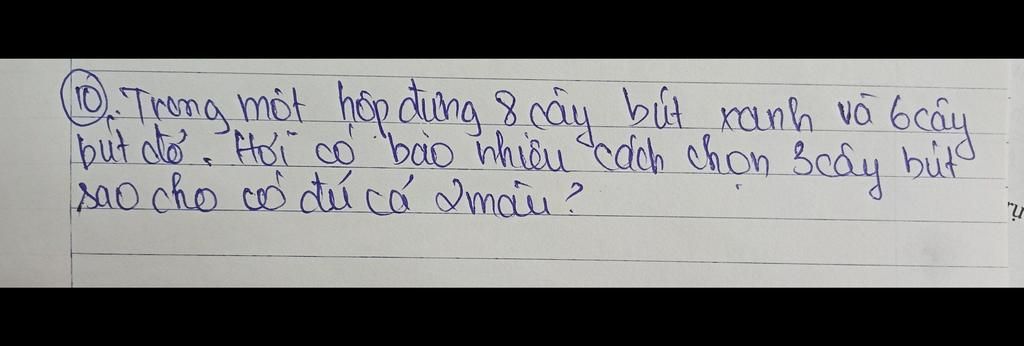 10. Trong một hộp đựng 8 cây bút xanh và 6 cây
bút đỏ. Hỏi có bao nhiêu cách chọn 3 cây bút
sao cho có đủ cả 2 màu?